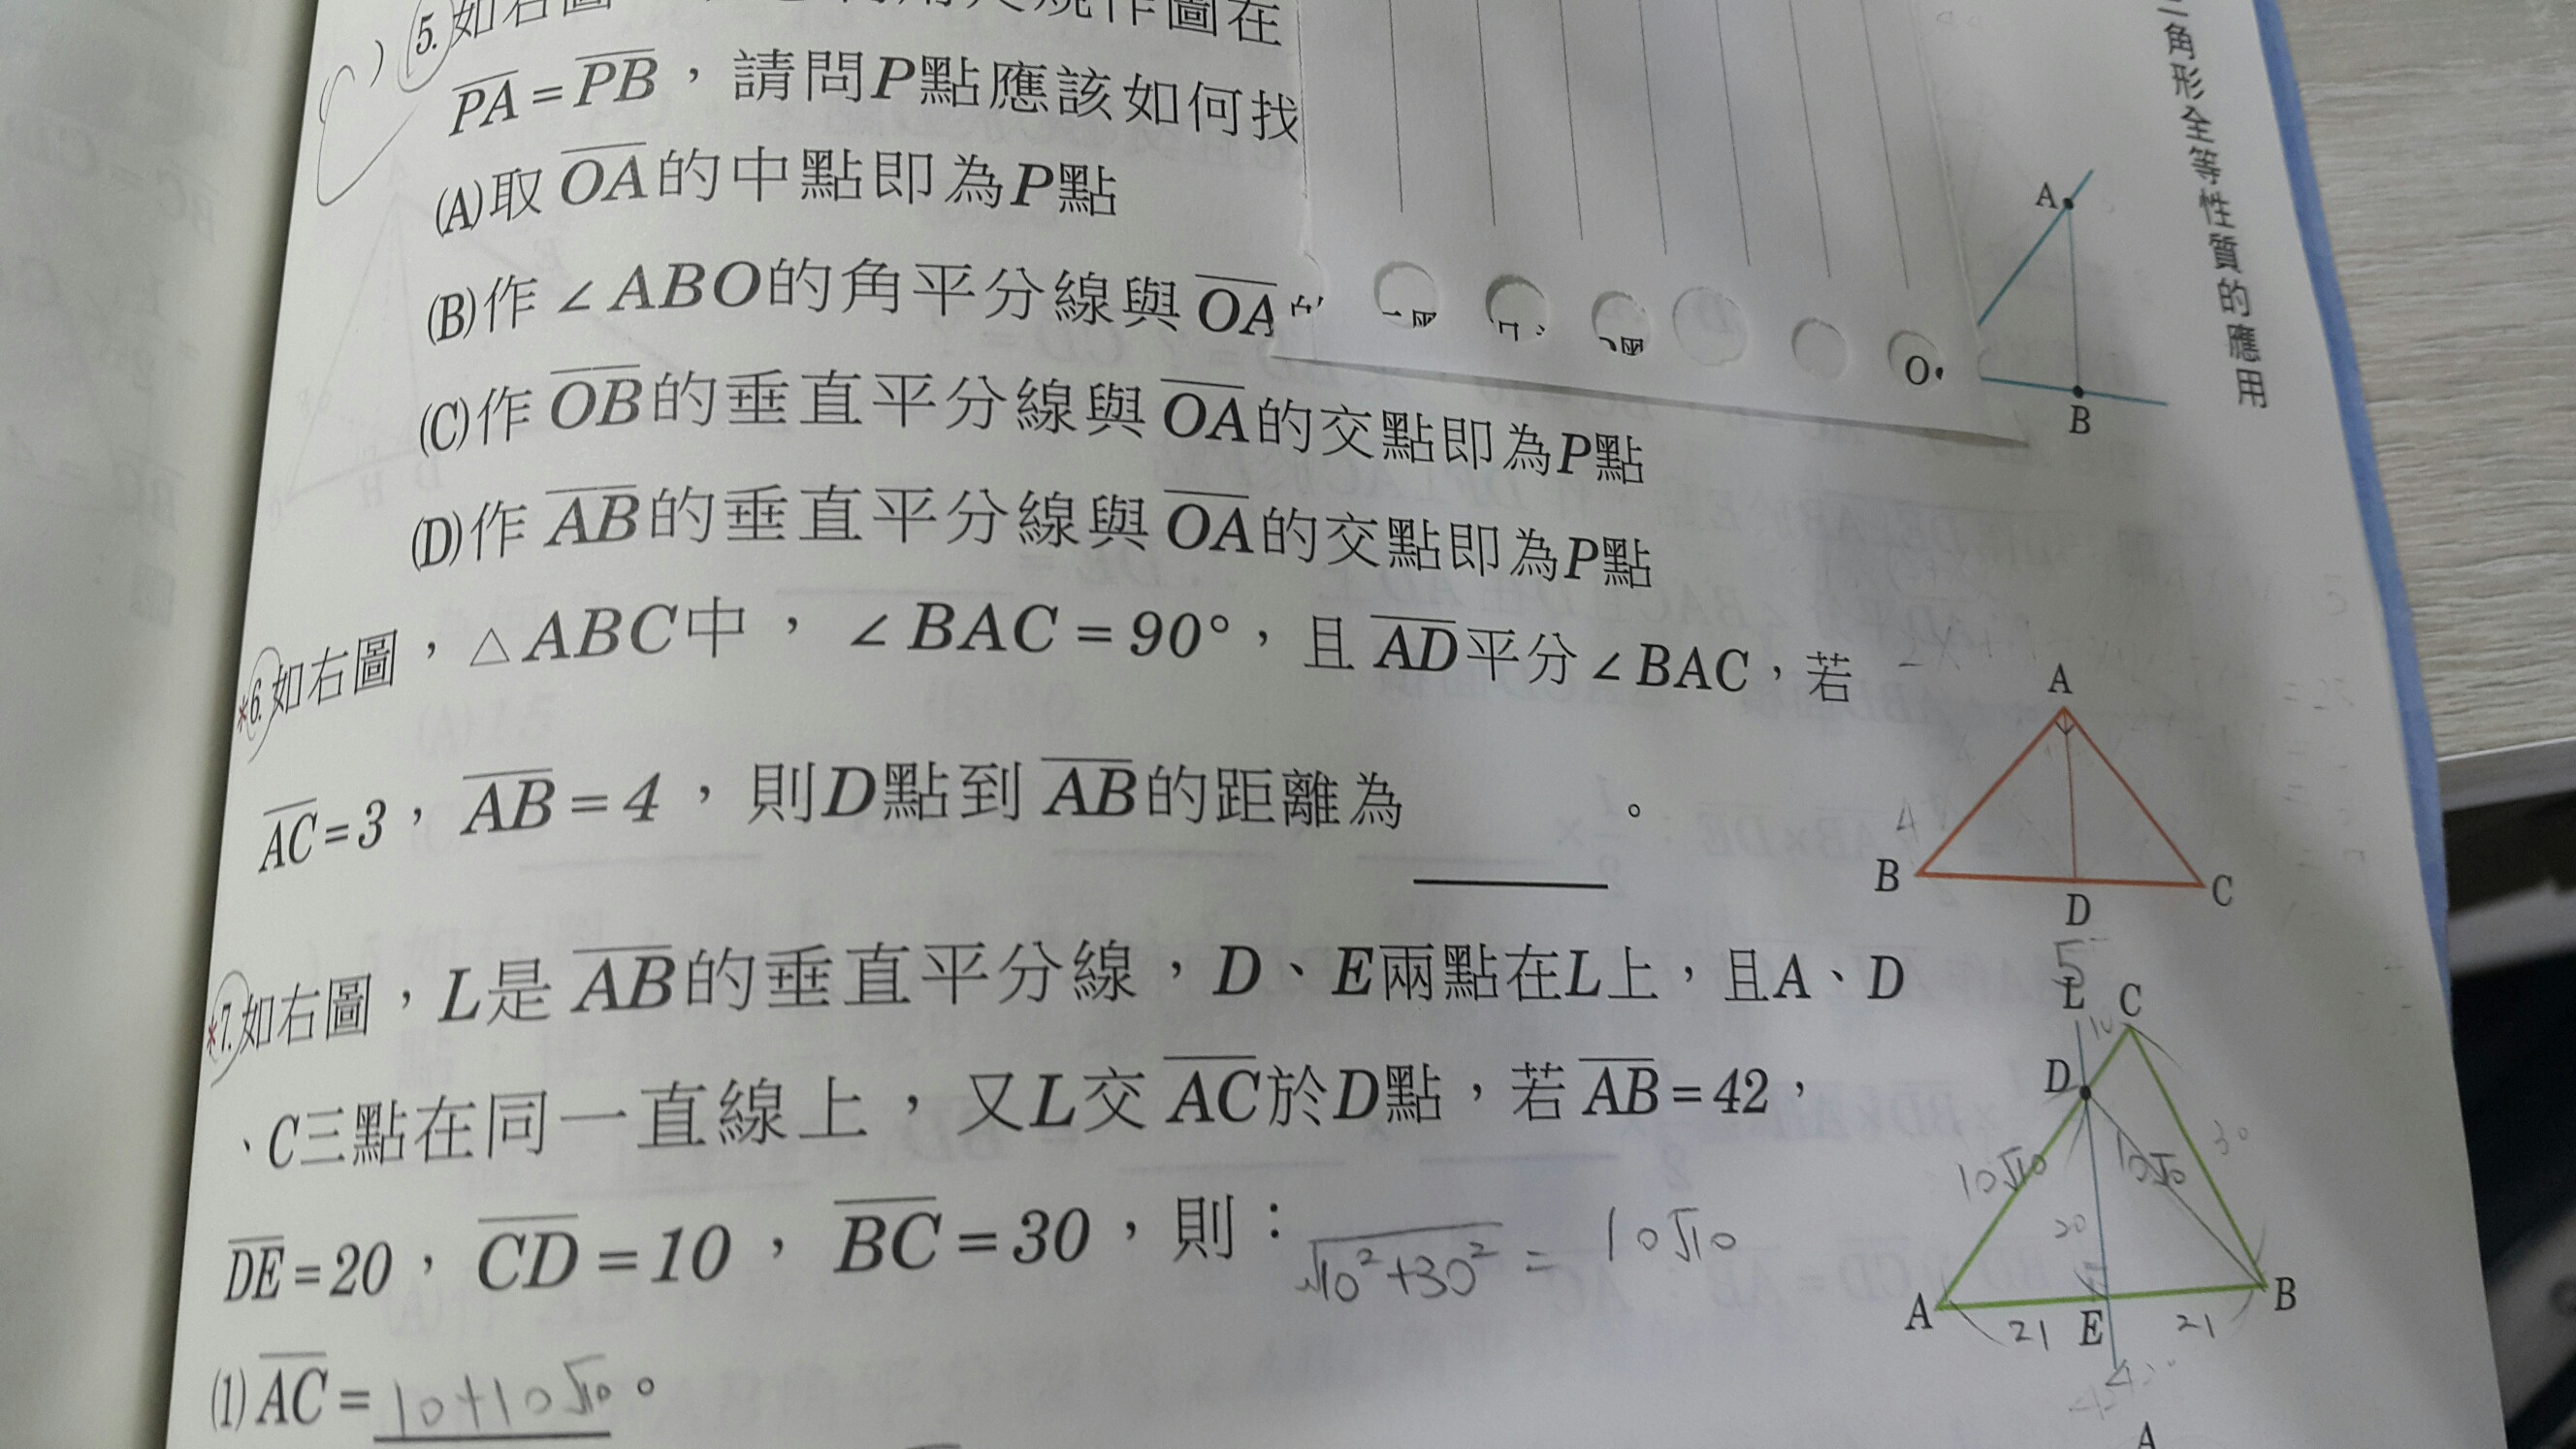 5. 如右圖
作圖在
PA = PB，請問P點應該如何找
(A)取 OA 的中點即為P點
(B)作∠ABO的角平分線與 OA
(C)作 OB 的垂直平分線與 OA 的交點即為P點
(D)作 AB 的垂直平分線與 OA 的交點即為P點
A
O
B
二角形全等性質的應用
*6. 如右圖，△ABC中，∠BAC = 90°，且 AD 平分∠BAC，若
AC = 3，AB = 4，則D點到 AB 的距離為 。
A
4
B
D
C
5
*7. 如右圖，L是 AB 的垂直平分線，D、E兩點在L上，且A、D
、C三點在同一直線上，又L交 AC 於D點，若 AB = 42，
DE = 20，CD = 10，BC = 30，則：
√10²+30² = 10√10
(1) AC = 10+10√10。
L
C
10
D
30
10√10
10√10
20
A
21
E
21
B
A